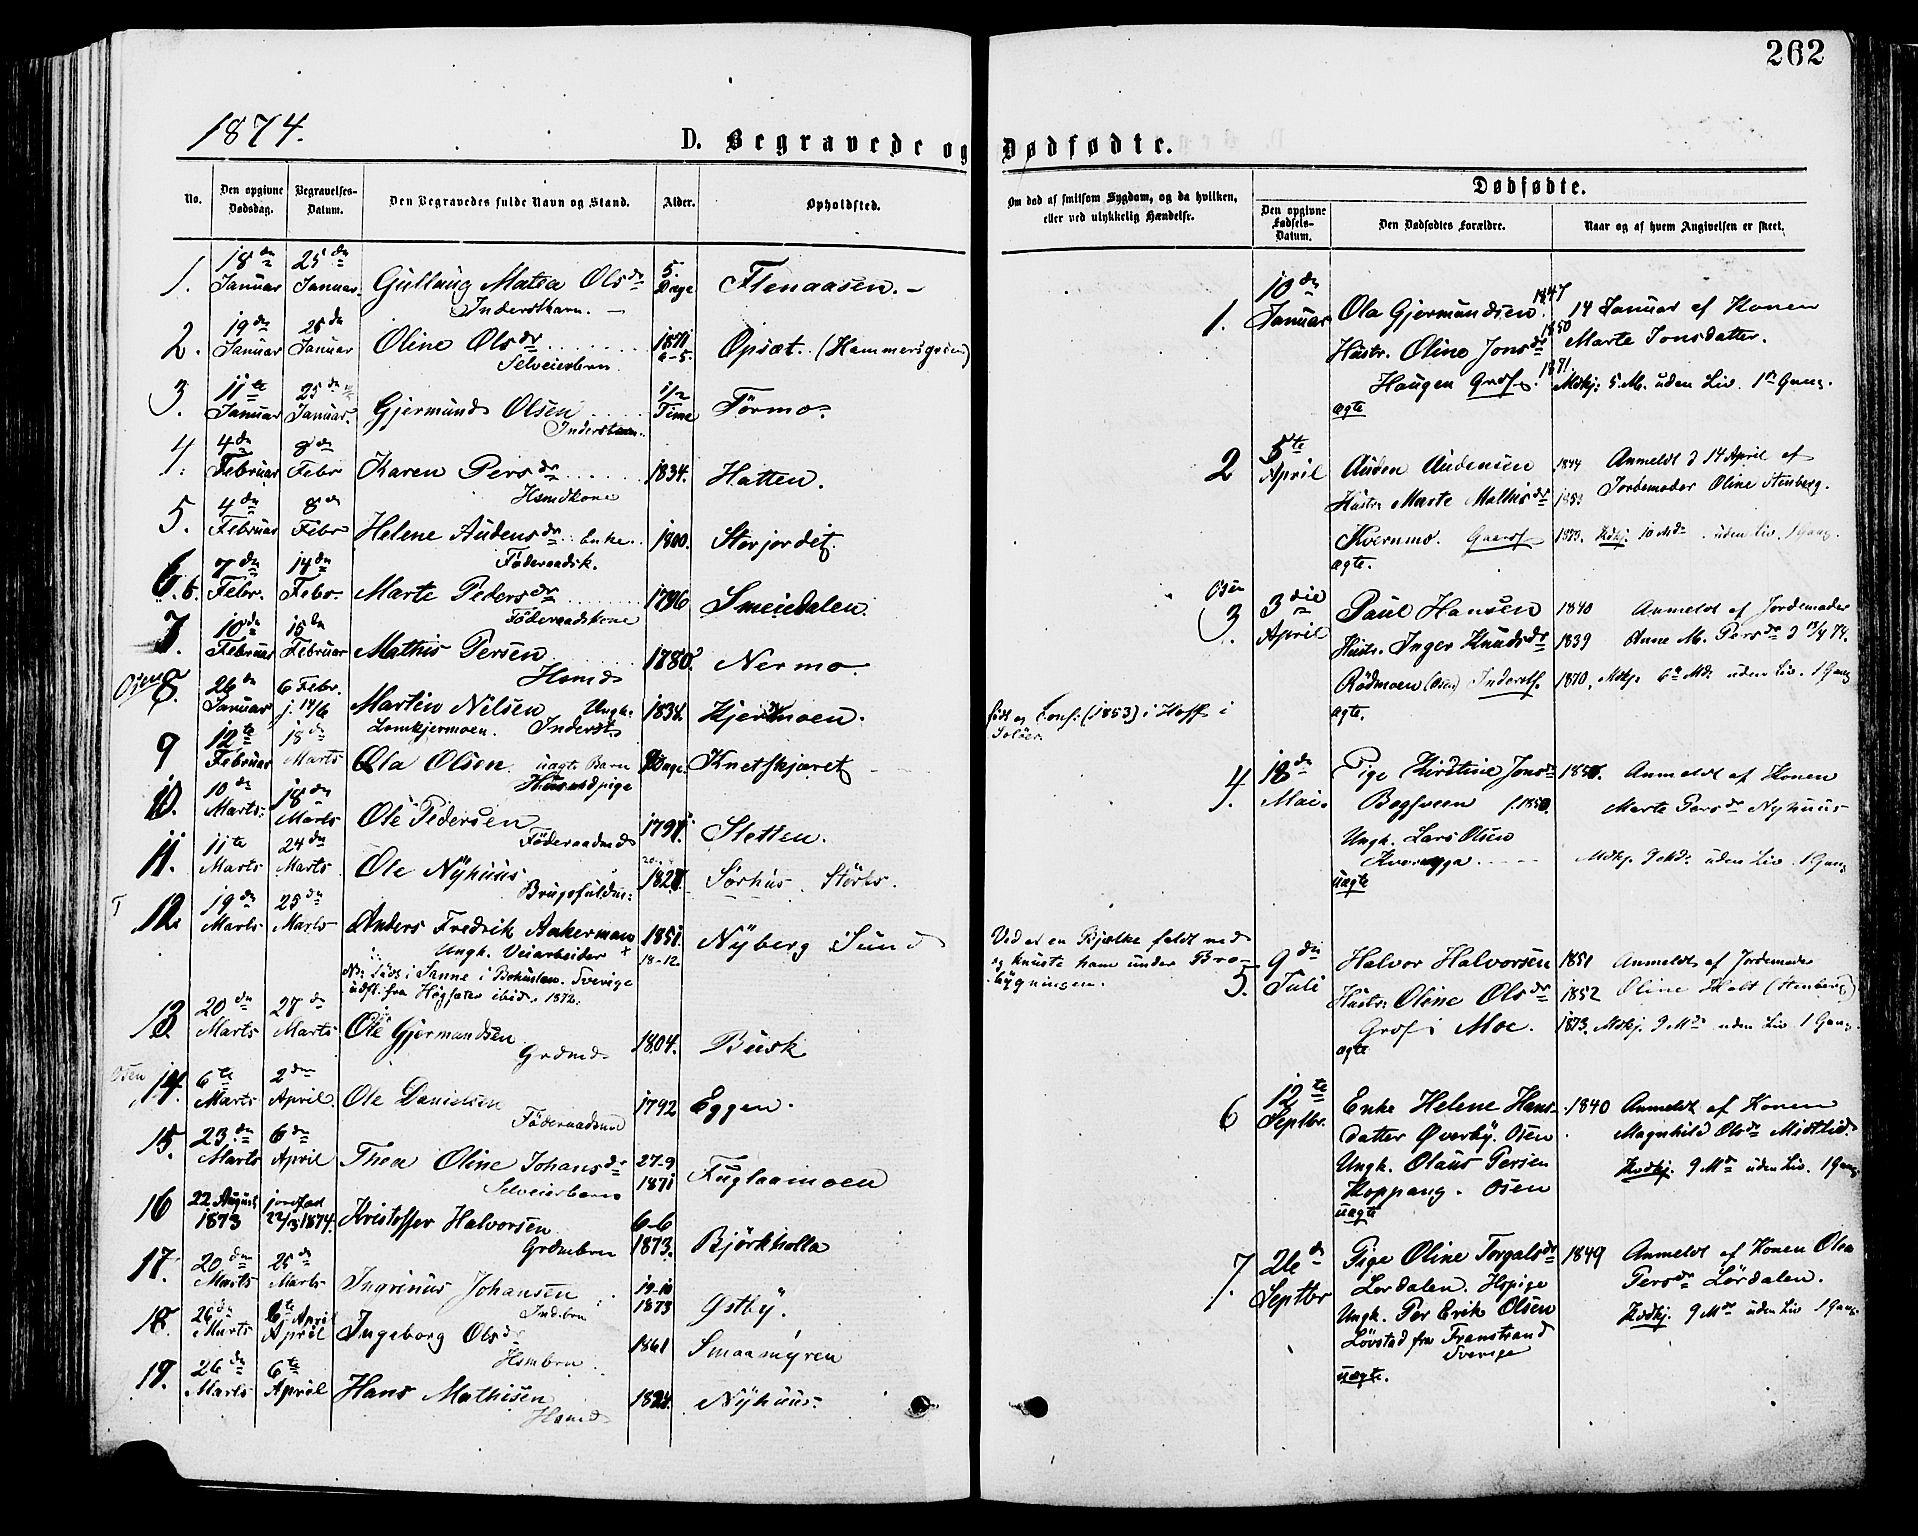 262
1874.
D. Begravede og Dødfødte.
No.
Den opgivne Dødsdag.
Begravelses-Datum.
Den Begravedes fulde Navn og Stand.
Alder.
Opholdsted.
1. 18de Januar 25de Januar. Gullaug Matea Olsdr 5. Dage Flenaasen. –
Inderstbarn. –
2. 19de Januar 25de Januar Oline Olsdr 1871 Opsæt. (Hammersgven)
Selveierbarn
3. 11te Januar 25de Januar. Gjermund Olsen 1/2 Time Törmo.
Inderstbarn.
4. 4de Februar 8de Febr Karen Persdr 1834. Hatten.
Hsmdkone
5. 4de Februar 8de Febr Helene Audensdr Enke 1800. Storjordet.
Föderaadsk.
6. 7de Febr. 14de Febr. Marte Pedersdr 1796 Smeidalen.
Föderaadskone
7. 10de Februar 15de Februar Mathis Persen 1780. Nermo
Hsmd
Osen 8. 26de Januar 6 Febr. j. 14/6 Martin Nilsen Ungk. 1834. Kjernmoen.
Lomkjermoen. Inderst
9 12te Februar 18de Marts Ola Olsen uægte Barn Dage. Knetskjæret
Huusmdpige
10. 10de Marts. 18de Marts Ole Pedersen 1797 Sletten.
Föderaadmd
11. 11te Marts 24de Marts Ole Nÿhuus 182 Sörhus. Störes.
12. 19de Marts 25de Marts Anders Fredrik Aakerman 1851. 18-12. Nÿberg i Sund
Ungk. Veiarbeider +
Nb: Föds i Sanne i Bohuslen. Sverige
udfl. fra Högsæter ibid. 1872.
13. 20de Marts 27de Marts Ole Gjermundsen 1804. Busk
Grdmd
Osen 14. 6te Marts 2den April. Ole Danielsen 1792 Eggen.
Föderaadsmd
15. 23de Marts 6de April Thea Oline Johansdr 27-9 1871 Fuglaamoen
Selveierbarn
16 22 August 1873 jordfæst 22/3 1874. Kristoffer Halvorsen 6-6 1873. Björkholla
Grdmbrn
17. 20de Marts 25de Marts Ingvinus Johansen 19-10 1873 Østbÿ.
Indsbrn
18. 26de Marts 6te April Ingeborg Olsdr 1861 Smaamÿren
Hsmbrn
19. 26de Marts 6te April Hans Mathisen 1824. Nÿhuus.
Hsmd
Om død af smitsom Sygdom, og da hvilken,
eller ved ulykkelig Hændelse.
født og Conf: (1853) i Hoff i
Solöer.
Ved at en Bjælke faldt ned
og knuste ham under Bro-
bÿgningen.
Dødfødte.
Den opgivne Fødsels-Datum.
Den Dødfødtes Forældre.
Naar og af hvem Angivelsen er skeet.
1. 10de Januar Ola Gjermundsen 1847 14 Januar af Konen
Hustr. Oline Jonsdr 1850 Marte Jonsdatter.
Haugen Grdf. 1871. Mdkj: 5 M. uden Liv. 1ste Gang.
ægte
2 5te April Auden Audensen 1844 Anmeldt d 14 April af
Hustr. Marte Mathisdr 1853 Jordemoder Oline Stenberg.
Kvernmo. Gaardf 1873. Kvdkj. 10 Md. uden Liv. 1 Gang.
ægte.
Osen 3. 3die April Paul Hansen 1840 Anmeldt af Jordemoder
Hustr. Inger Knudsdr 1839 Anne M. Persdr d 13/4 74.
Rödmoen (Osen) Inderstf. 1870. Mdkj. 6te Md. uden Liv. 1 Gang
ægte.
4. 18de Mai. Pige Kirstine Jonsdr 1850. Anmeldt af Konen
Bagsveen f. 1850. Marte Persdr Nyhuus
Ungk. Lars Olsen
Mdkj. 9 Md. uden Liv. 1 Gang
uægte
5. 9de Juli Halvor Halvorsen 1851 Anmeldt af Jordemoder
Hustr. Oline Olsdr 1852 Oline Holt (Stenberg)
Grdf i Moe. 1873. Mdkj. 9 Md. uden Liv 1 Gang
ægte
6 12te Septbr. Enke Helene Hans- 1840 Anmeldt af Konen
datter Øverbÿ. Osen Magnhild Olsdr Midtlid.
Ungk. Olaus Persen Kvdkj. 9 Md uden Liv. 1 Gang
Koppang. Osen
uægte
7. 26de Septbr Pige Oline Torgalsdr 1849 Anmeldt af Konen Olea
Lordalen. Hspige Persdr Lördalen.
Ungk. Per Erik Olsen Kvdkj. 9 Md uden Liv 1 Gang
Lövstad fra Transtrand
Sverige
uægte.